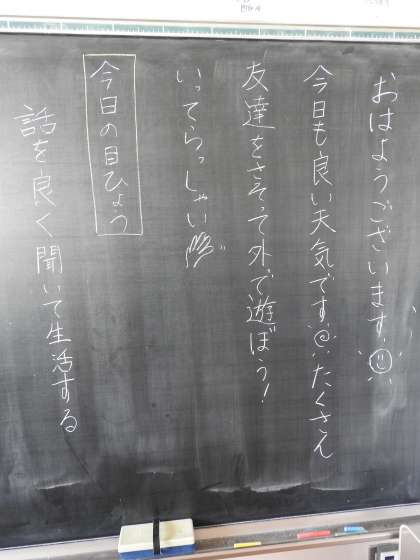 おはようございます
今日も良い天気です たくさん
友達をさそって外で遊ぼう!
いってらっしゃい
今日の目ひょう
話を良く聞いて生活する